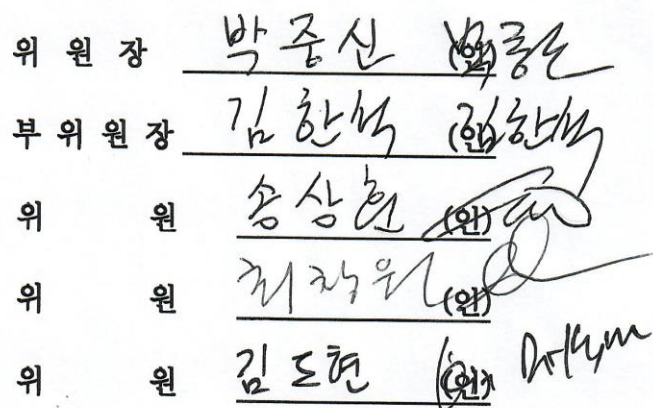 위 원 장 박중신 (인)
부 위 원 장 김한석 (인) 김한석
위 원 송상헌 (인)
위 원 최창원 (인)
위 원 김도현 (인)